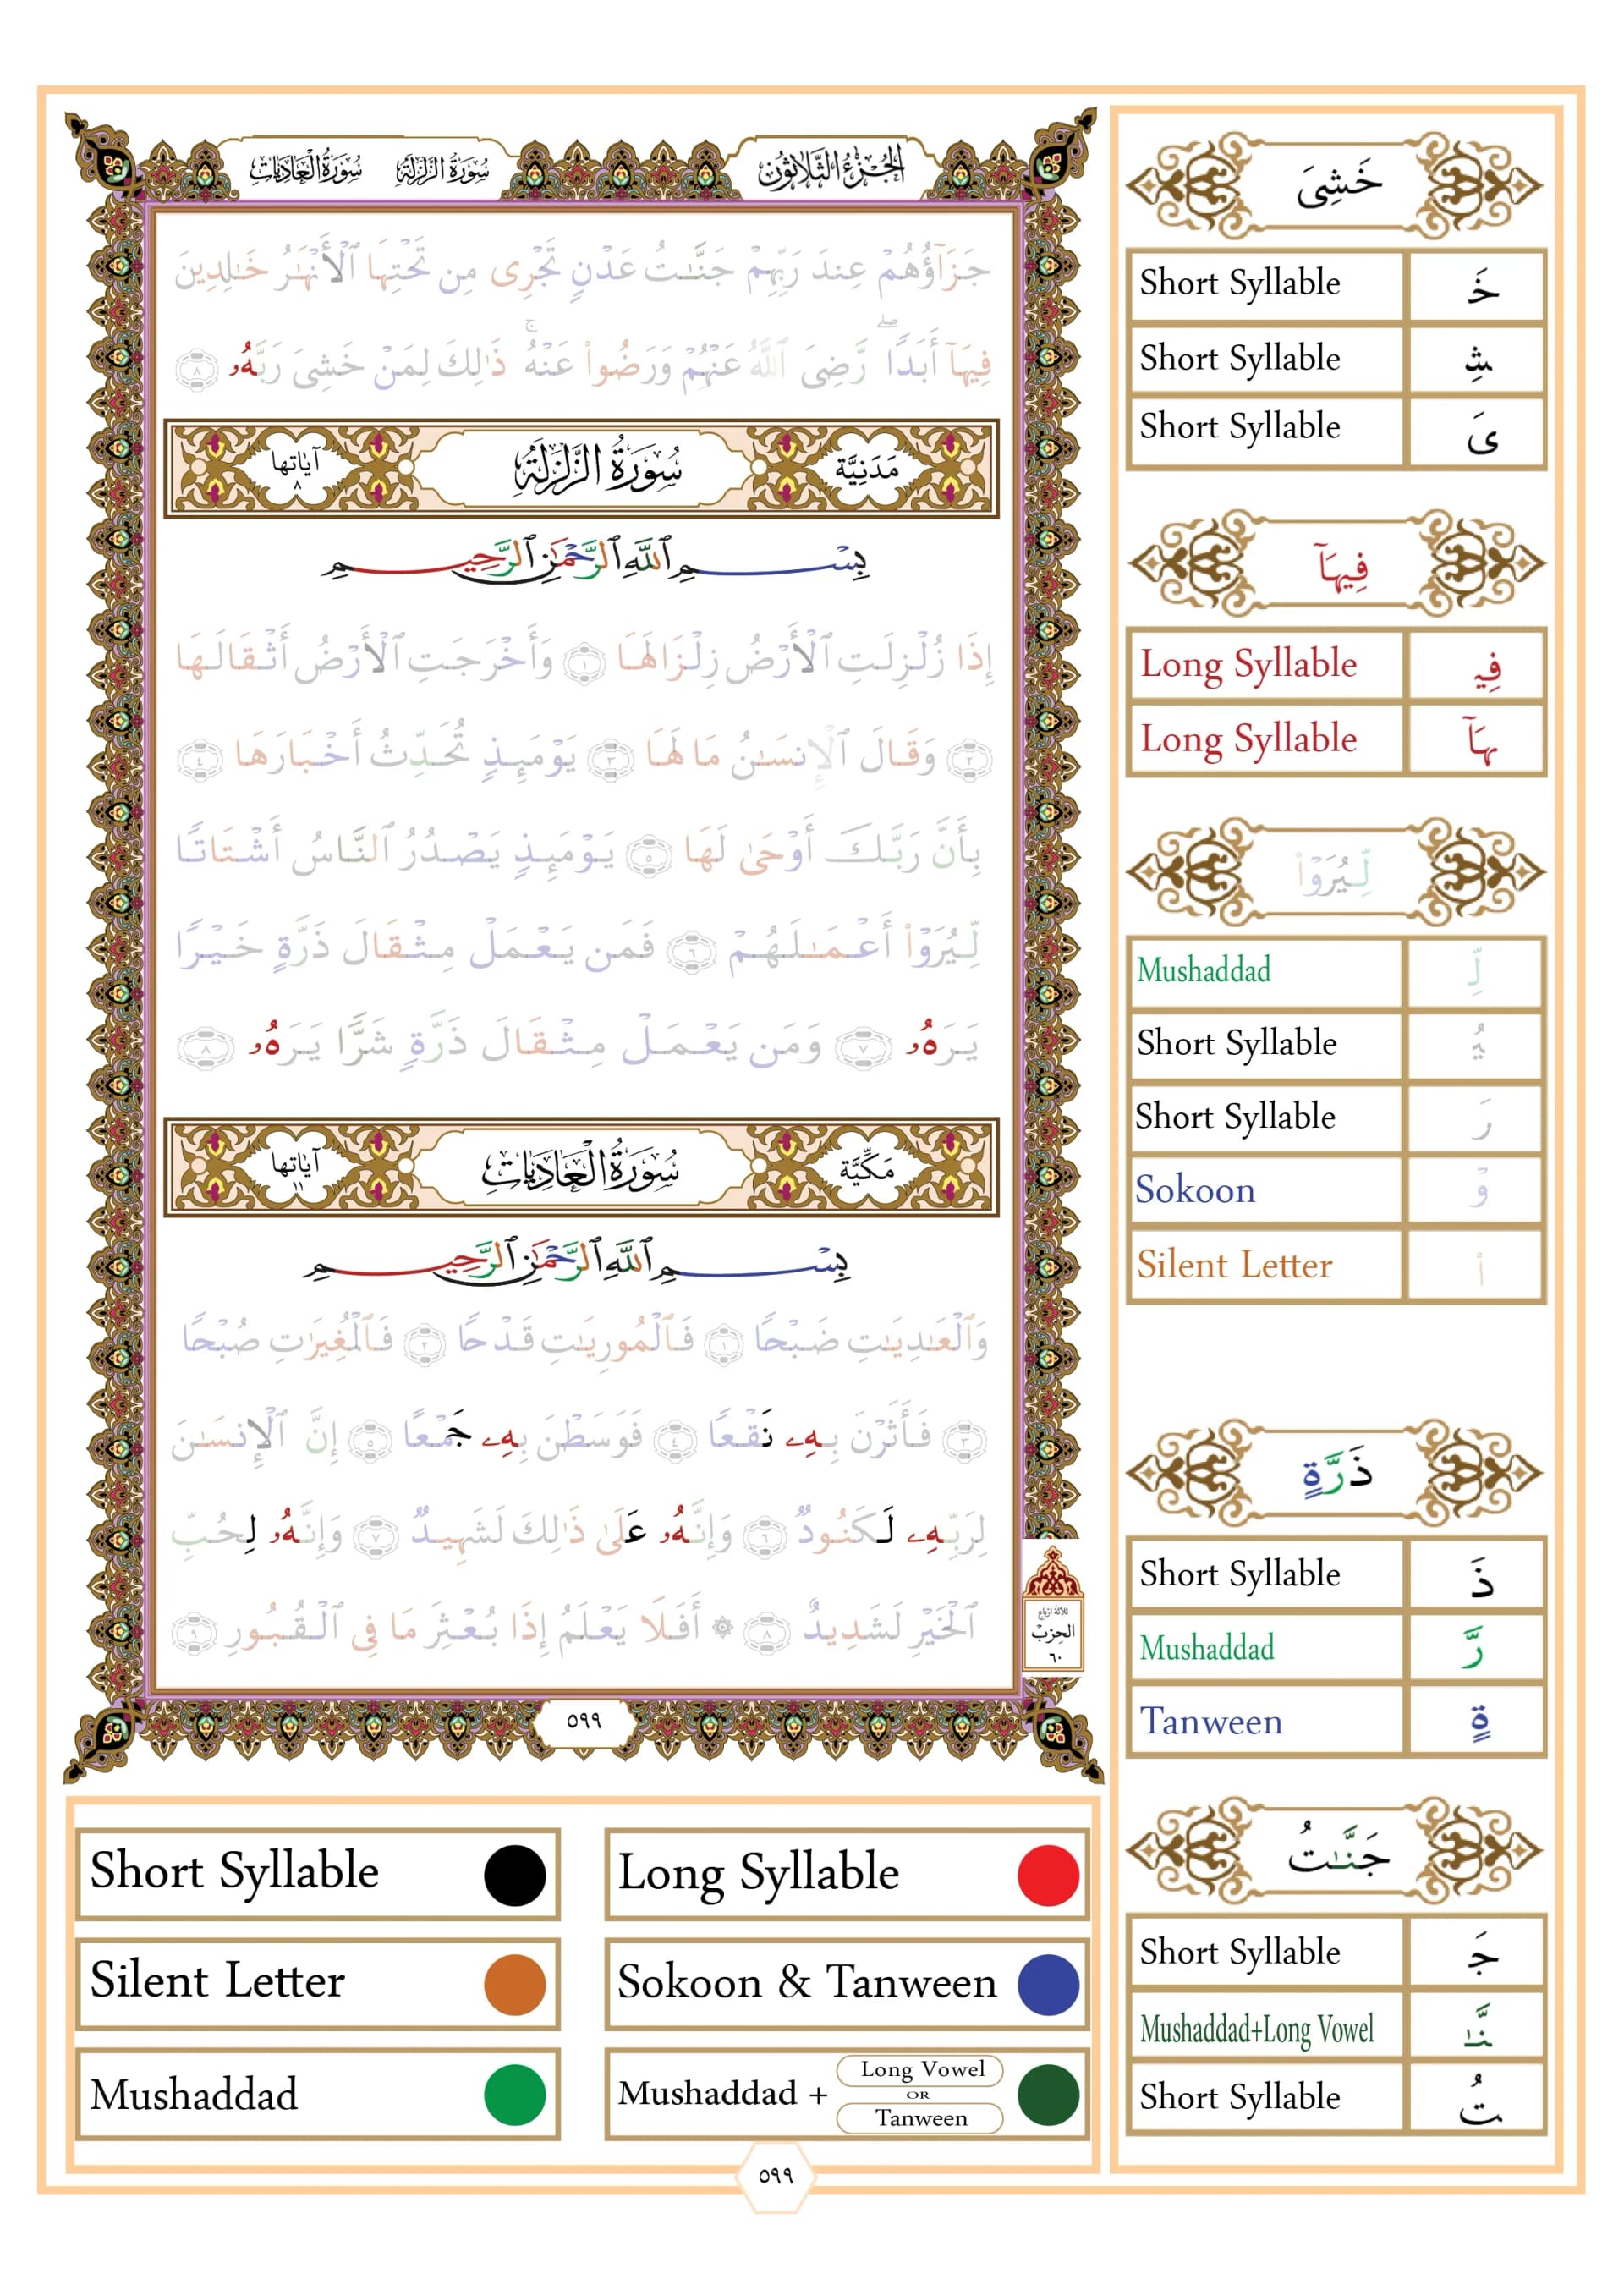 الجُزْءُ الثَّلَاثُون
سُورَةُ الزَّلْزَلَةِ
سُورَةُ العَادِيَاتِ
جَزَآؤُهُمْ عِندَ رَبِّهِمْ جَنَّـٰتُ عَدْنٍ تَجْرِى مِن تَحْتِهَا ٱلْأَنْهَـٰرُ خَـٰلِدِينَ
فِيهَآ أَبَدًا ۖ رَّضِىَ ٱللَّهُ عَنْهُمْ وَرَضُوا۟ عَنْهُ ۚ ذَٰلِكَ لِمَنْ خَشِىَ رَبَّهُۥ ٨
مَدَنِيَّة
سُورَةُ الزَّلْزَلَةِ
آيَاتها ٨
بِسْمِ ٱللَّهِ ٱلرَّحْمَـٰنِ ٱلرَّحِيمِ
إِذَا زُلْزِلَتِ ٱلْأَرْضُ زِلْزَالَهَا ١ وَأَخْرَجَتِ ٱلْأَرْضُ أَثْقَالَهَا
٢ وَقَالَ ٱلْإِنسَـٰنُ مَا لَهَا ٣ يَوْمَئِذٍ تُحَدِّثُ أَخْبَارَهَا ٤
بِأَنَّ رَبَّكَ أَوْحَىٰ لَهَا ٥ يَوْمَئِذٍ يَصْدُرُ ٱلنَّاسُ أَشْتَاتًا
لِّيُرَوْا۟ أَعْمَـٰلَهُمْ ٦ فَمَن يَعْمَلْ مِثْقَالَ ذَرَّةٍ خَيْرًا
يَرَهُۥ ٧ وَمَن يَعْمَلْ مِثْقَالَ ذَرَّةٍ شَرًّا يَرَهُۥ ٨
مَكِّيَّة
سُورَةُ العَادِيَاتِ
آيَاتها ١١
بِسْمِ ٱللَّهِ ٱلرَّحْمَـٰنِ ٱلرَّحِيمِ
وَٱلْعَـٰدِيَـٰتِ ضَبْحًا ١ فَٱلْمُورِيَـٰتِ قَدْحًا ٢ فَٱلْمُغِيرَٰتِ صُبْحًا
٣ فَأَثَرْنَ بِهِۦ نَقْعًا ٤ فَوَسَطْنَ بِهِۦ جَمْعًا ٥ إِنَّ ٱلْإِنسَـٰنَ
لِرَبِّهِۦ لَكَنُودٌ ٦ وَإِنَّهُۥ عَلَىٰ ذَٰلِكَ لَشَهِيدٌ ٧ وَإِنَّهُۥ لِحُبِّ
ٱلْخَيْرِ لَشَدِيدٌ ٨ ۞ أَفَلَا يَعْلَمُ إِذَا بُعْثِرَ مَا فِى ٱلْقُبُورِ ٩
ثلاثة أرباع
الحزب
٦٠
٥٩٩
خَشِىَ
Short Syllable خَ
Short Syllable شِ
Short Syllable ىَ
فِيهَآ
Long Syllable فِي
Long Syllable هَآ
لِّيُرَوْا۟
Mushaddad لِّ
Short Syllable يُ
Short Syllable رَ
Sokoon وْ
Silent Letter ا۟
ذَرَّةٍ
Short Syllable ذَ
Mushaddad رَّ
Tanween ةٍ
جَنَّـٰتُ
Short Syllable جَ
Mushaddad+Long Vowel نَّـٰ
Short Syllable تُ
Short Syllable
Long Syllable
Silent Letter
Sokoon & Tanween
Mushaddad
Mushaddad + Long Vowel OR Tanween
٥٩٩